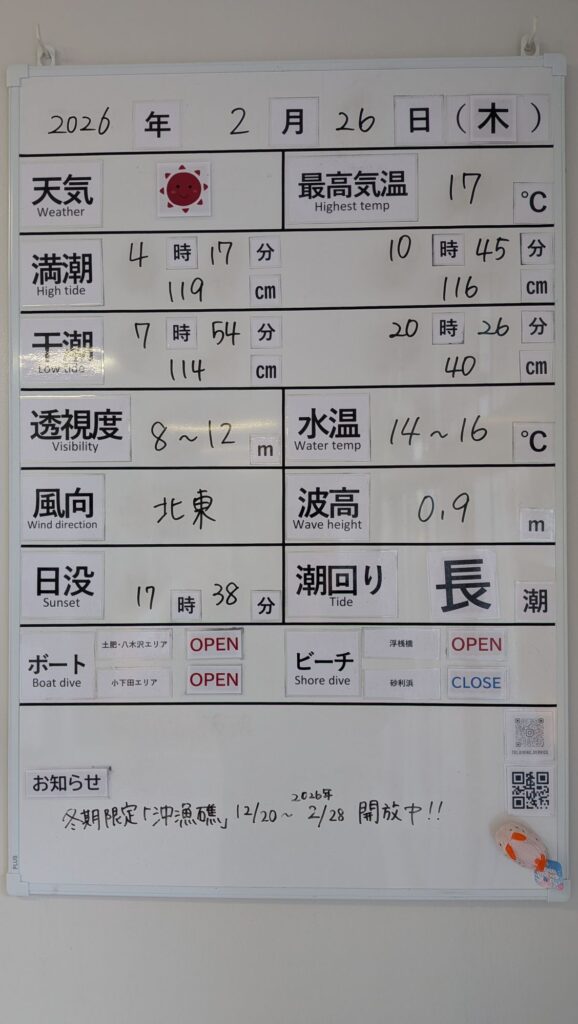 2026 年 2 月 26 日 (木)
天気 最高気温 17 ℃
Weather Highest temp
満潮 4 時 17 分 10 時 45 分
High tide 119 cm 116 cm
干潮 7 時 54 分 20 時 26 分
Low tide 114 cm 40 cm
透視度 8～12 m 水温 14～16 ℃
Visibility Water temp
風向 北東 波高 0.9 m
Wind direction Wave height
日没 17 時 38 分 潮回り 長 潮
Sunset Tide
ボート 土肥・八木沢エリア OPEN ビーチ 浮桟橋 OPEN
Boat dive 小下田エリア OPEN Shore dive 砂利浜 CLOSE
お知らせ
2026年
冬期限定「沖漁礁」 12/20～2/28 開放中!!
PLUS